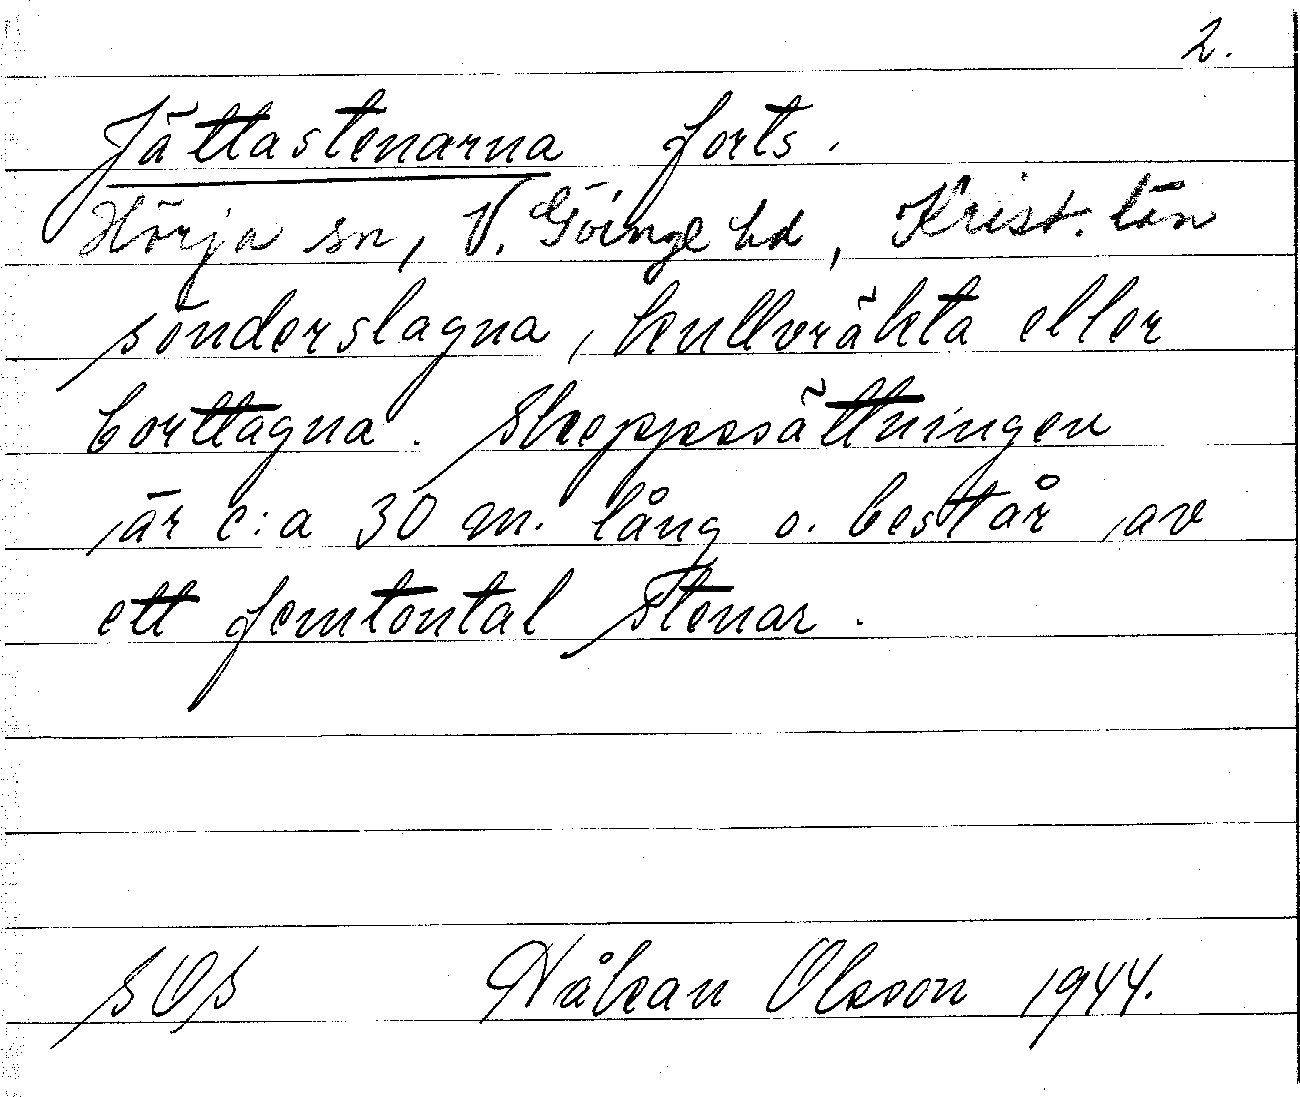 2.
Jättastenarna forts.
Hörja sn, V. Göinge hd, Krist. län
sönderslagna, kullvräkta eller
borttagna. Skeppssättningen
är c:a 30 m. lång o. består av
ett femtontal stenar.
SOS Håkan Olsson 1944.